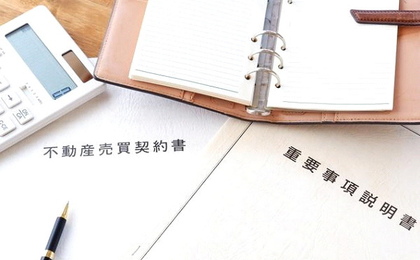 不動産売買契約書
重要事項説明書